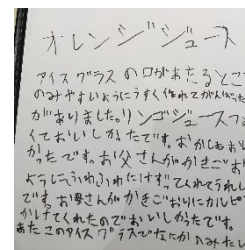 オレンジジュース
アイスグラスの口があたるところ
のみやすいようにうすく作れてがんばった
がありました。リンゴジュースつ
くておいしかたです。おかしもおい
かったです。お父さんがかきごおり
ようにふわふわにけずってくれてうれし
です。お母さんがかきごおりにカルピ
かけてくれたのでおいしかたです。
あたこのアイスグラスでなにかのみたい